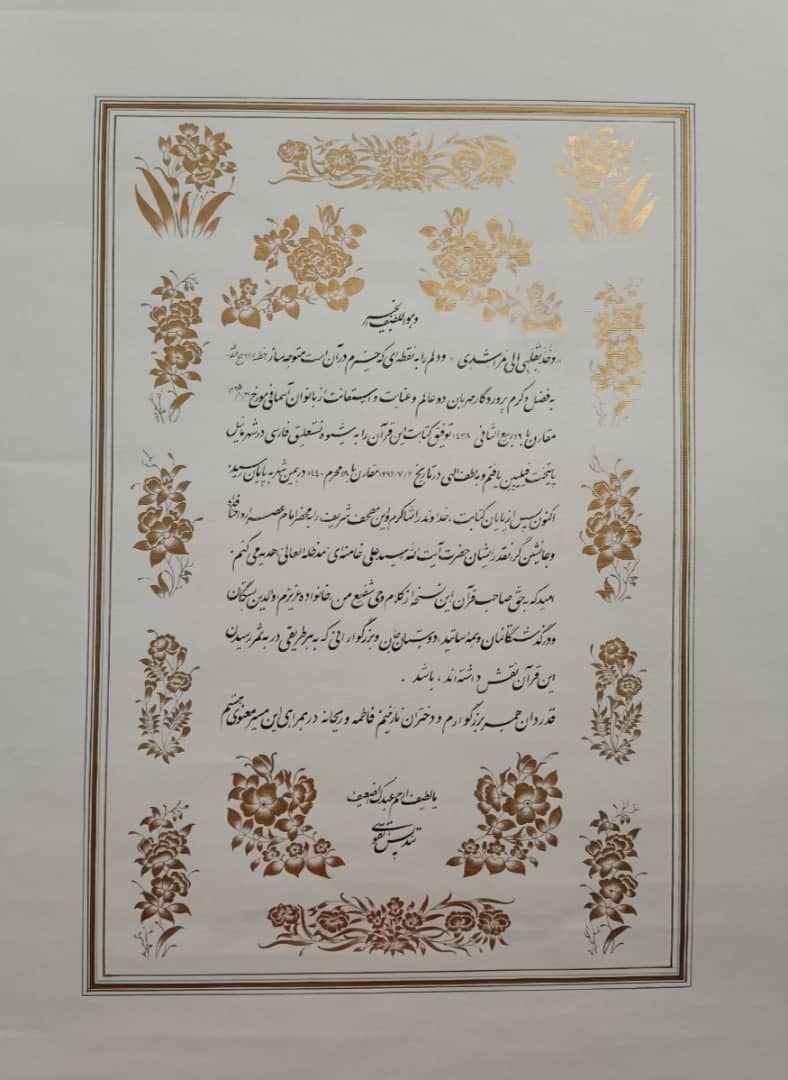 و هو اللطیف الخبیر
«و خُذ بِقَلبی اِلی مَراشِدی» و دلم را به نقطه‌ای که خیرم در آن است متوجه ساز خطبه ۲۲۷ نهج البلاغه
به فضل و کرم پروردگار مهربان دو عالم و عنایت و استعانت از بانوان آسمانی مورخ
مقارن با ۶ ربیع الثانی ۱۴۳۸ توفیق کتابت این قرآن را به شیوه نستعلیق فارسی در شهر مانیل
پایتخت فیلیپین یافتم و به لطف الهی در تاریخ ۱۳۹۷/۷/۶ مقارن با ۱۸ محرم ۱۴۴۰ در همین شهر به پایان رسید.
اکنون پس از پایان کتابت، خداوند را شاکرم و این مصحف شریف را به محضر امام عصر ارواحنا فداه
و جانشین گرانقدر ایشان حضرت آیت الله سید علی خامنه‌ای مدظله العالی هدیه می‌کنم.
امید که به حق صاحب قرآن این نسخه از کلام وحی شفیع من، خانواده عزیزم، والدین، بستگان
و درگذشتگانمان و همه اساتید، دوستان جان و بزرگوارانی که به هر طریقی در به ثمر رسیدن
این قرآن نقش داشته‌اند، باشد.
قدردان همسر بزرگوارم و دختران نازنینم فاطمه و ریحانه در همراهی این مسیر معنوی هستم
یا لطیف ارحم عبدک الضعیف
تندیس تقوی